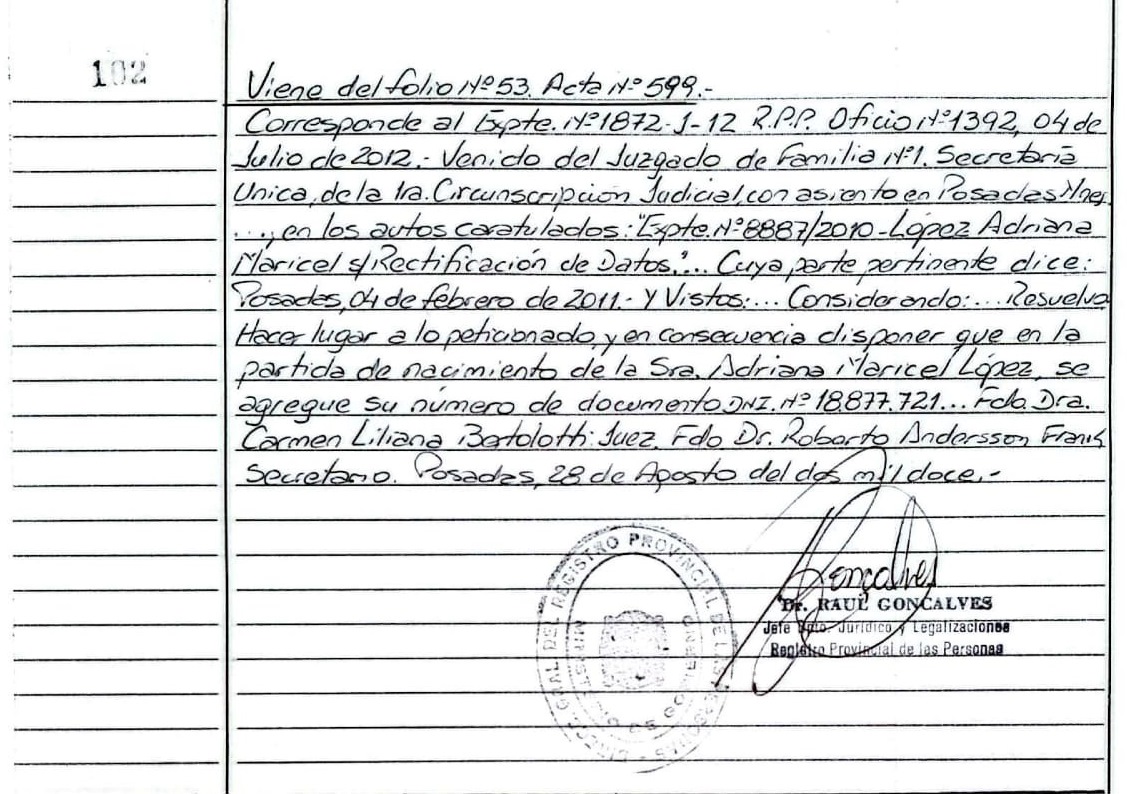 102
Viene del folio Nº 53. Acta Nº 599.-
Corresponde al Expte. Nº 1872-J-12 R.P.P. Oficio Nº 1392, 04 de
Julio de 2012.- Venido del Juzgado de Familia Nº 1. Secretaría
Unica, de la 1ra. Circunscripción Judicial, con asiento en Posadas Mnes.
..., en los autos caratulados: "Expte. Nº 8887/2010 - López Adriana
Maricel s/ Rectificación de Datos."... Cuya parte pertinente dice:
Posadas, 04 de febrero de 2011.- Y Vistos:... Considerando:... Resuelvo
Hacer lugar a lo peticionado, y en consecuencia disponer que en la
partida de nacimiento de la Sra. Adriana Maricel López, se
agregue su número de documento DNI. Nº 18.877.721... Fdo. Dra.
Carmen Liliana Bertolotti: Juez. Fdo Dr. Roberto Andersson Frank
Secretario. Posadas, 28 de Agosto del dos mil doce.-
Gonçalves
Dr. RAUL GONCALVES
Jefe Dpto. Jurídico y Legalizaciones
Registro Provincial de las Personas
DIREC. GRAL. DEL REGISTRO PROVINCIAL DE LAS PERSONAS
MINISTERIO DE GOBIERNO